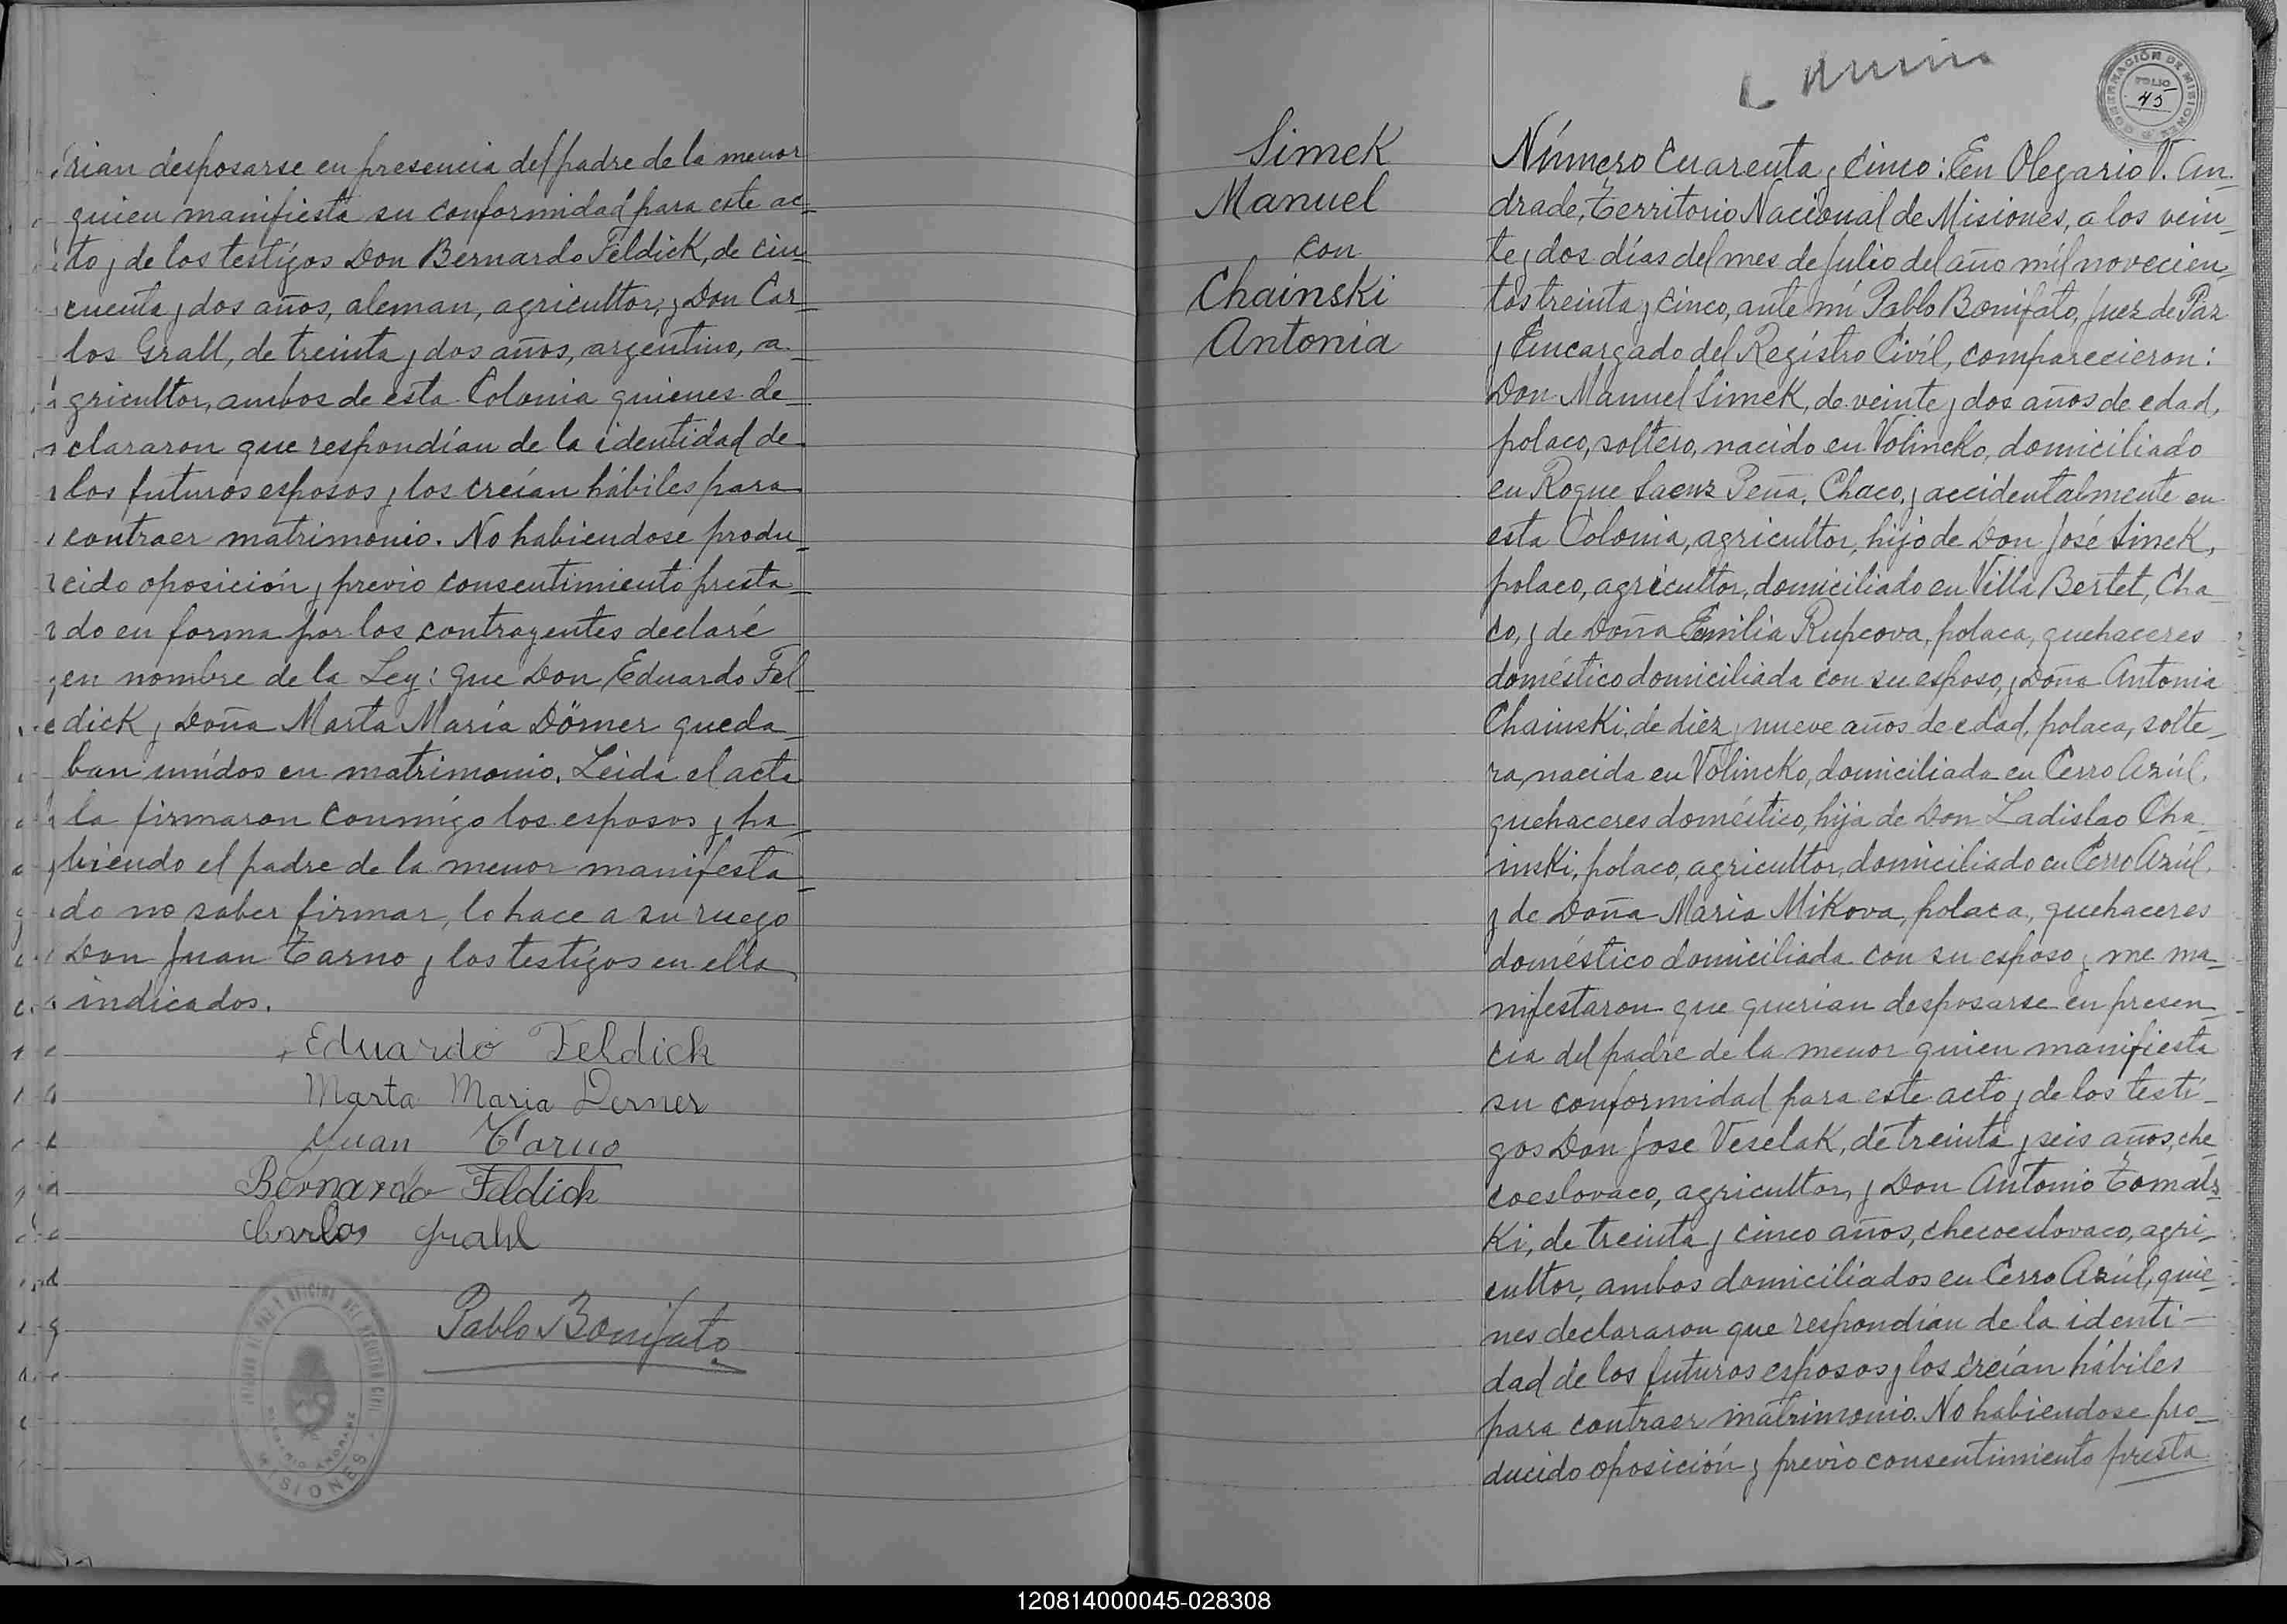 rian desposarse en presencia del padre de la menor
quien manifiesta su conformidad para este ac-
to y de los testigos Don Bernardo Feldick, de cin-
cuenta y dos años, aleman, agricultor, y Don Car-
los Grall, de treinta y dos años, argentino, a-
gricultor, ambos de esta Colonia quienes de-
clararon que respondían de la identidad de
los futuros esposos y los creían hábiles para
contraer matrimonio. No habiendose produ-
cido oposición y previo consentimiento presta-
do en forma por los contrayentes declaré
en nombre de la Ley: que Don Eduardo Fel-
dick y Doña Marta María Dörner queda-
ban unidos en matrimonio. Leida el acta
la firmaron conmigo los esposos y ha-
biendo el padre de la menor manifesta-
do no saber firmar, lo hace a su ruego
Don Juan Tarno y los testigos en ella
indicados.
Eduardo Feldick
Marta Maria Derner
Juan Tarno
Bernardo Feldick
Charlos Grahl
Pablo Bonifato
MISIONES
Simek
Manuel
con
Chainski
Antonia
GOBERNACIÓN DE MISIONES
FOLIO
45
Número Cuarenta y Cinco: En Olegario V. An-
drade, Territorio Nacional de Misiones, a los vein-
te y dos días del mes de Julio del año mil novecien-
tos treinta y cinco, ante mí Pablo Bonifato, Juez de Paz
y Encargado del Registro Civil, comparecieron:
Don Manuel Simek, de veinte y dos años de edad,
polaco, soltero, nacido en Volincko, domiciliado
en Roque Saenz Peña, Chaco, y accidentalmente en
esta Colonia, agricultor, hijo de Don José Simek,
polaco, agricultor, domiciliado en Villa Bertet, Cha-
co, y de Doña Emilia Rupcova, polaca, quehaceres
doméstico domiciliada con su esposo, y Doña Antonia
Chainski, de diez y nueve años de edad, polaca, solte-
ra, nacida en Volincko, domiciliada en Cerro Azúl,
quehaceres doméstico, hija de Don Ladislao Cha-
inski, polaco, agricultor, domiciliado en Cerro Azúl,
y de Doña Maria Mikova, polaca, quehaceres
doméstico domiciliada con su esposo y me ma-
nifestaron que querian desposarse en presen-
cia del padre de la menor quien manifiesta
su conformidad para este acto y de los testi-
gos Don Jose Veselak, de treinta y seis años, che-
coeslovaco, agricultor, y Don Antonio Tomals-
ki, de treinta y cinco años, checoeslovaco, agri-
cultor, ambos domiciliados en Cerro Azúl, quie-
nes declararon que respondían de la identi-
dad de los futuros esposos y los creían hábiles
para contraer matrimonio. No habiendose pro-
ducido oposición y previo consentimiento presta
120814000045-028308